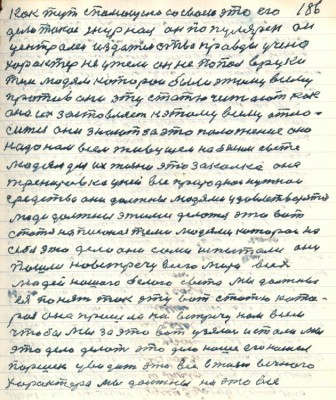 186
Как тут с помощью со своею это его
дело такое журнал он популярен он
централен издательство правда учено
характер не умен он не попал в руки
тем людям которые были этому всему
против они эту статью читают как
она их заставляет к этому всему отно-
сится они знают за это положение оно
надо нам всем живущем на белом свете
людям для их жизни это закалка она
тренировка у ней все природное нужное
средство они должны людями удовлетворятся
люди должны этими делится это вот
статя написана теми людями которая на
себя это дело они сами испытали они
пошли навстречу всего мира всех
людей нашего белого света мы должны
ея понят так эту вот статью кото-
рая она пришла на встречу нам всем
чтобы мы за это вот взялись и стали мы
это дело делать это дело наше
увидит это все в
характера мы должны на это все